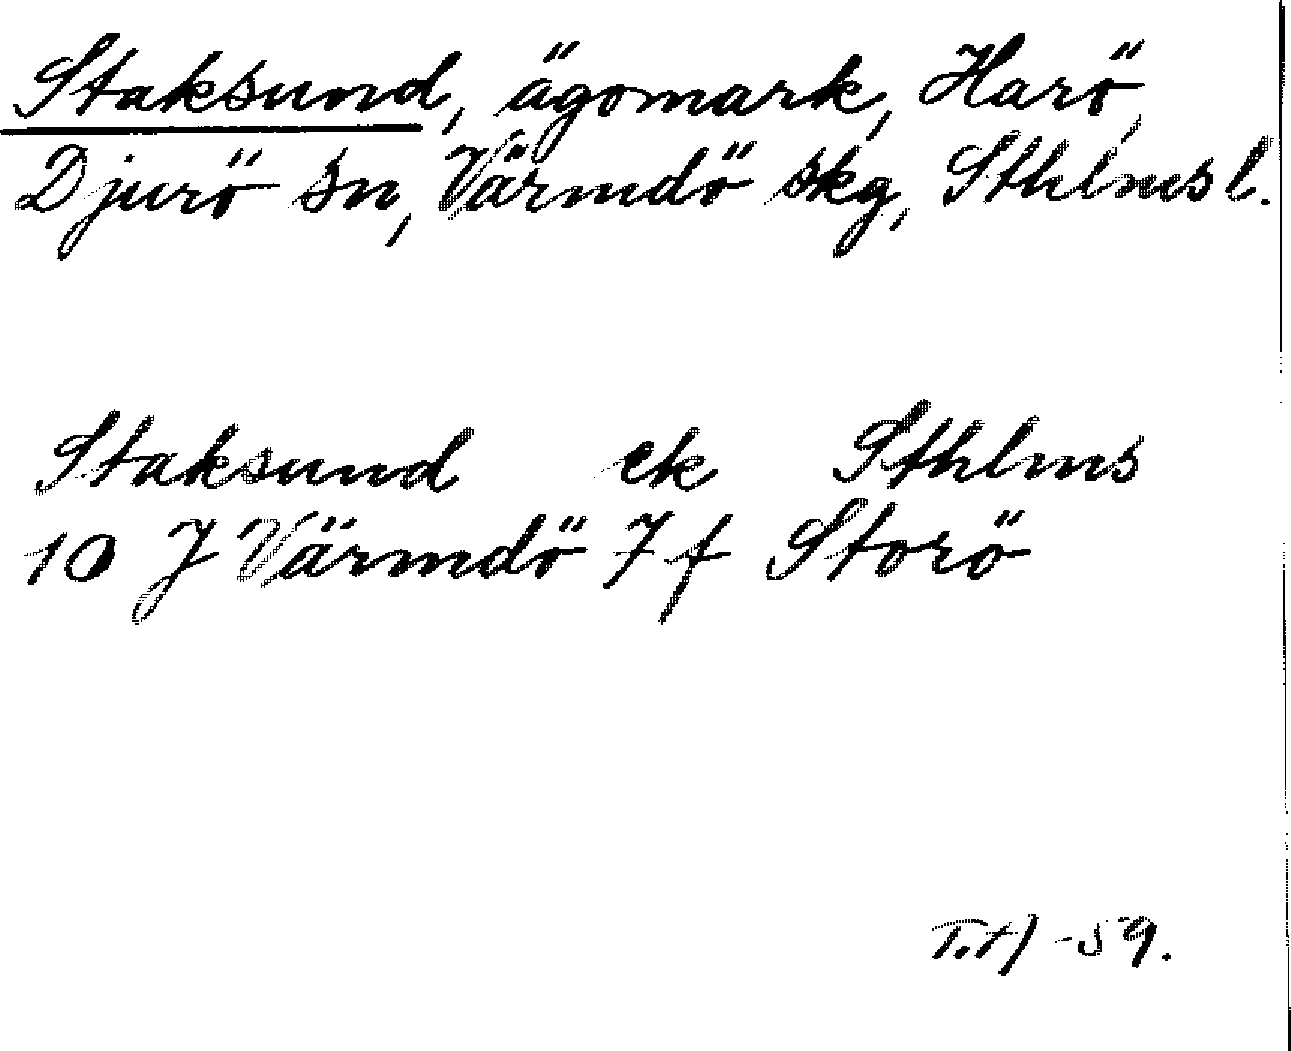 Staksund, ägomark, Harö,
Djurö sn, Värmdö skg, Sthlms l.
Staksund ek Sthlms
10 J Värmdö 7 f Storö
T.H -59.